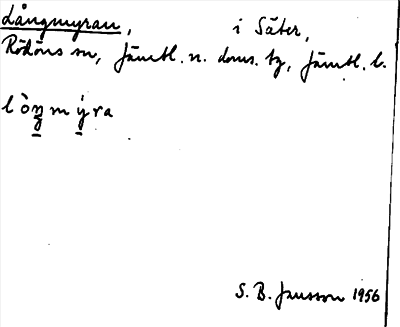 Långmyran, i Säter,
Rödöns sn, Jämtl. n. doms. tg, Jämtl. l.
lòŋmýra
S. B. Jansson 1956